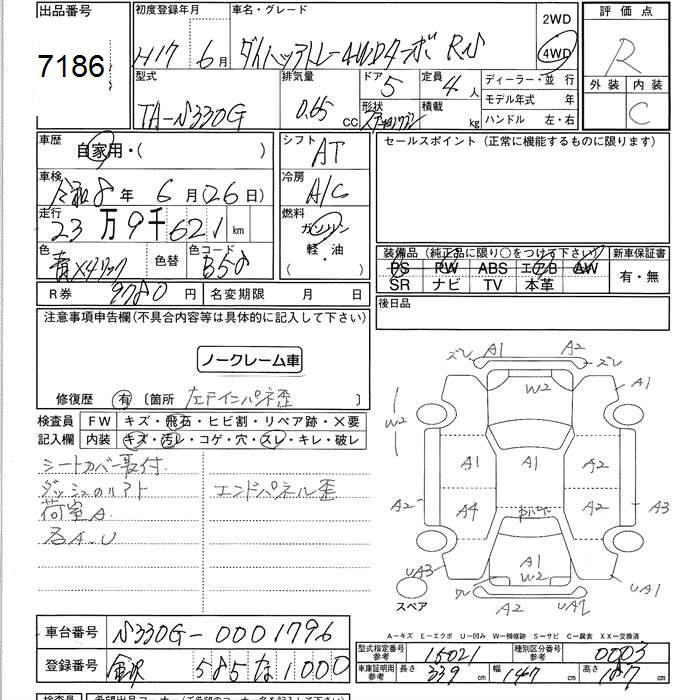 出品番号
7186
初度登録年月
H17年 6月
車名・グレード
ダイハツアトレー4WDターボ RS
2WD
4WD
評価点
R
外装
内装
C
型式
TA-S330G
排気量
0.65 CC
ドア
5
形状
ステーションワゴン
定員
4人
積載
kg
ディーラー・並行
モデル年式 年
ハンドル 左・右
車歴
自家用・( )
車検
令和8年 6月(26日)
走行
23万9千621 km
色
青×グリック
色替
色コード
B58
R券
9780円
名変期限 月 日
シフト
AT
冷房
A/C
燃料
ガソリン
軽・油
( )
セールスポイント (正常に機能するものに限ります)
装備品 (純正品に限り○をつけて下さい)
新車保証書
PS RW ABS エアB AW
SR ナビ TV 本革
有・無
後日品
注意事項申告欄(不具合内容等は具体的に記入して下さい)
ノークレーム車
修復歴 有 〔箇所 左F.インパネ歪 〕
検査員
記入欄
FW キズ・飛石・ヒビ割・リペア跡・X要
内装 キズ・汚レ・コゲ・穴・スレ・キレ・破レ
シートカバー取付
荷室A
各A.U
エンドパネル歪
ズレ A1 A2 ズレ
W2
A1
W2
A1 A2
A2
A4 A2
A3
A1
W2
UA3
UA1
A2
スペア
A-キズ E-エクボ U-凹み W-補修跡 S-サビ C-腐食 XX-交換済
車台番号
S330G-0001796
登録番号
金沢 585 な 1000
型式指定番号
参考
15021
種別区分番号
参考
0003
車庫証明用
参考
長さ 339 cm
幅 147 cm
高さ 187 cm
検査員
希望出品コーナー(ご希望のコーナー名を記入して下さい)